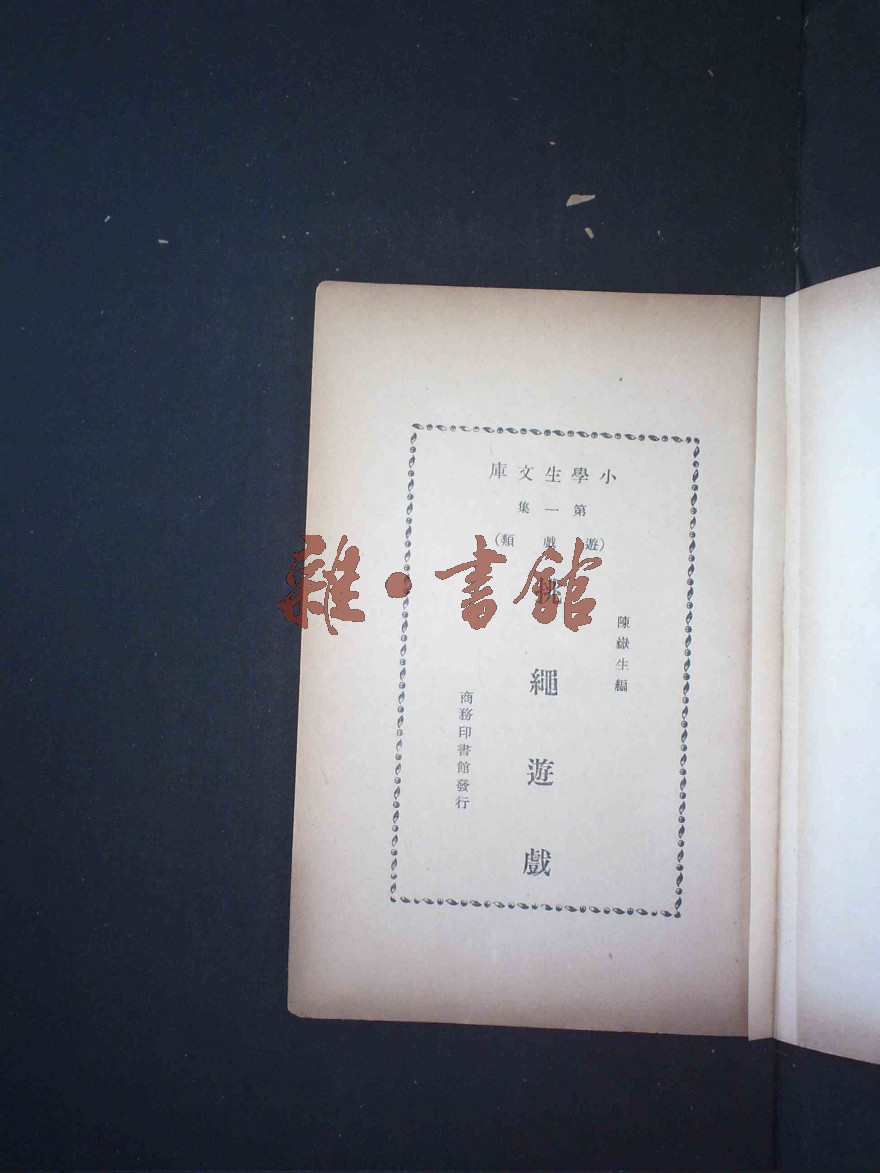 小學生文庫
第一集
(遊戲類)
陳嶽生編
挑繩遊戲
商務印書館發行
雜·書館